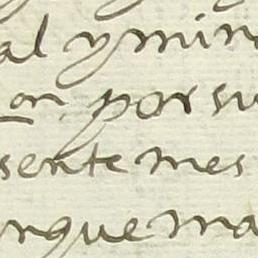 al y mira
on por su
sente mes
rque ma